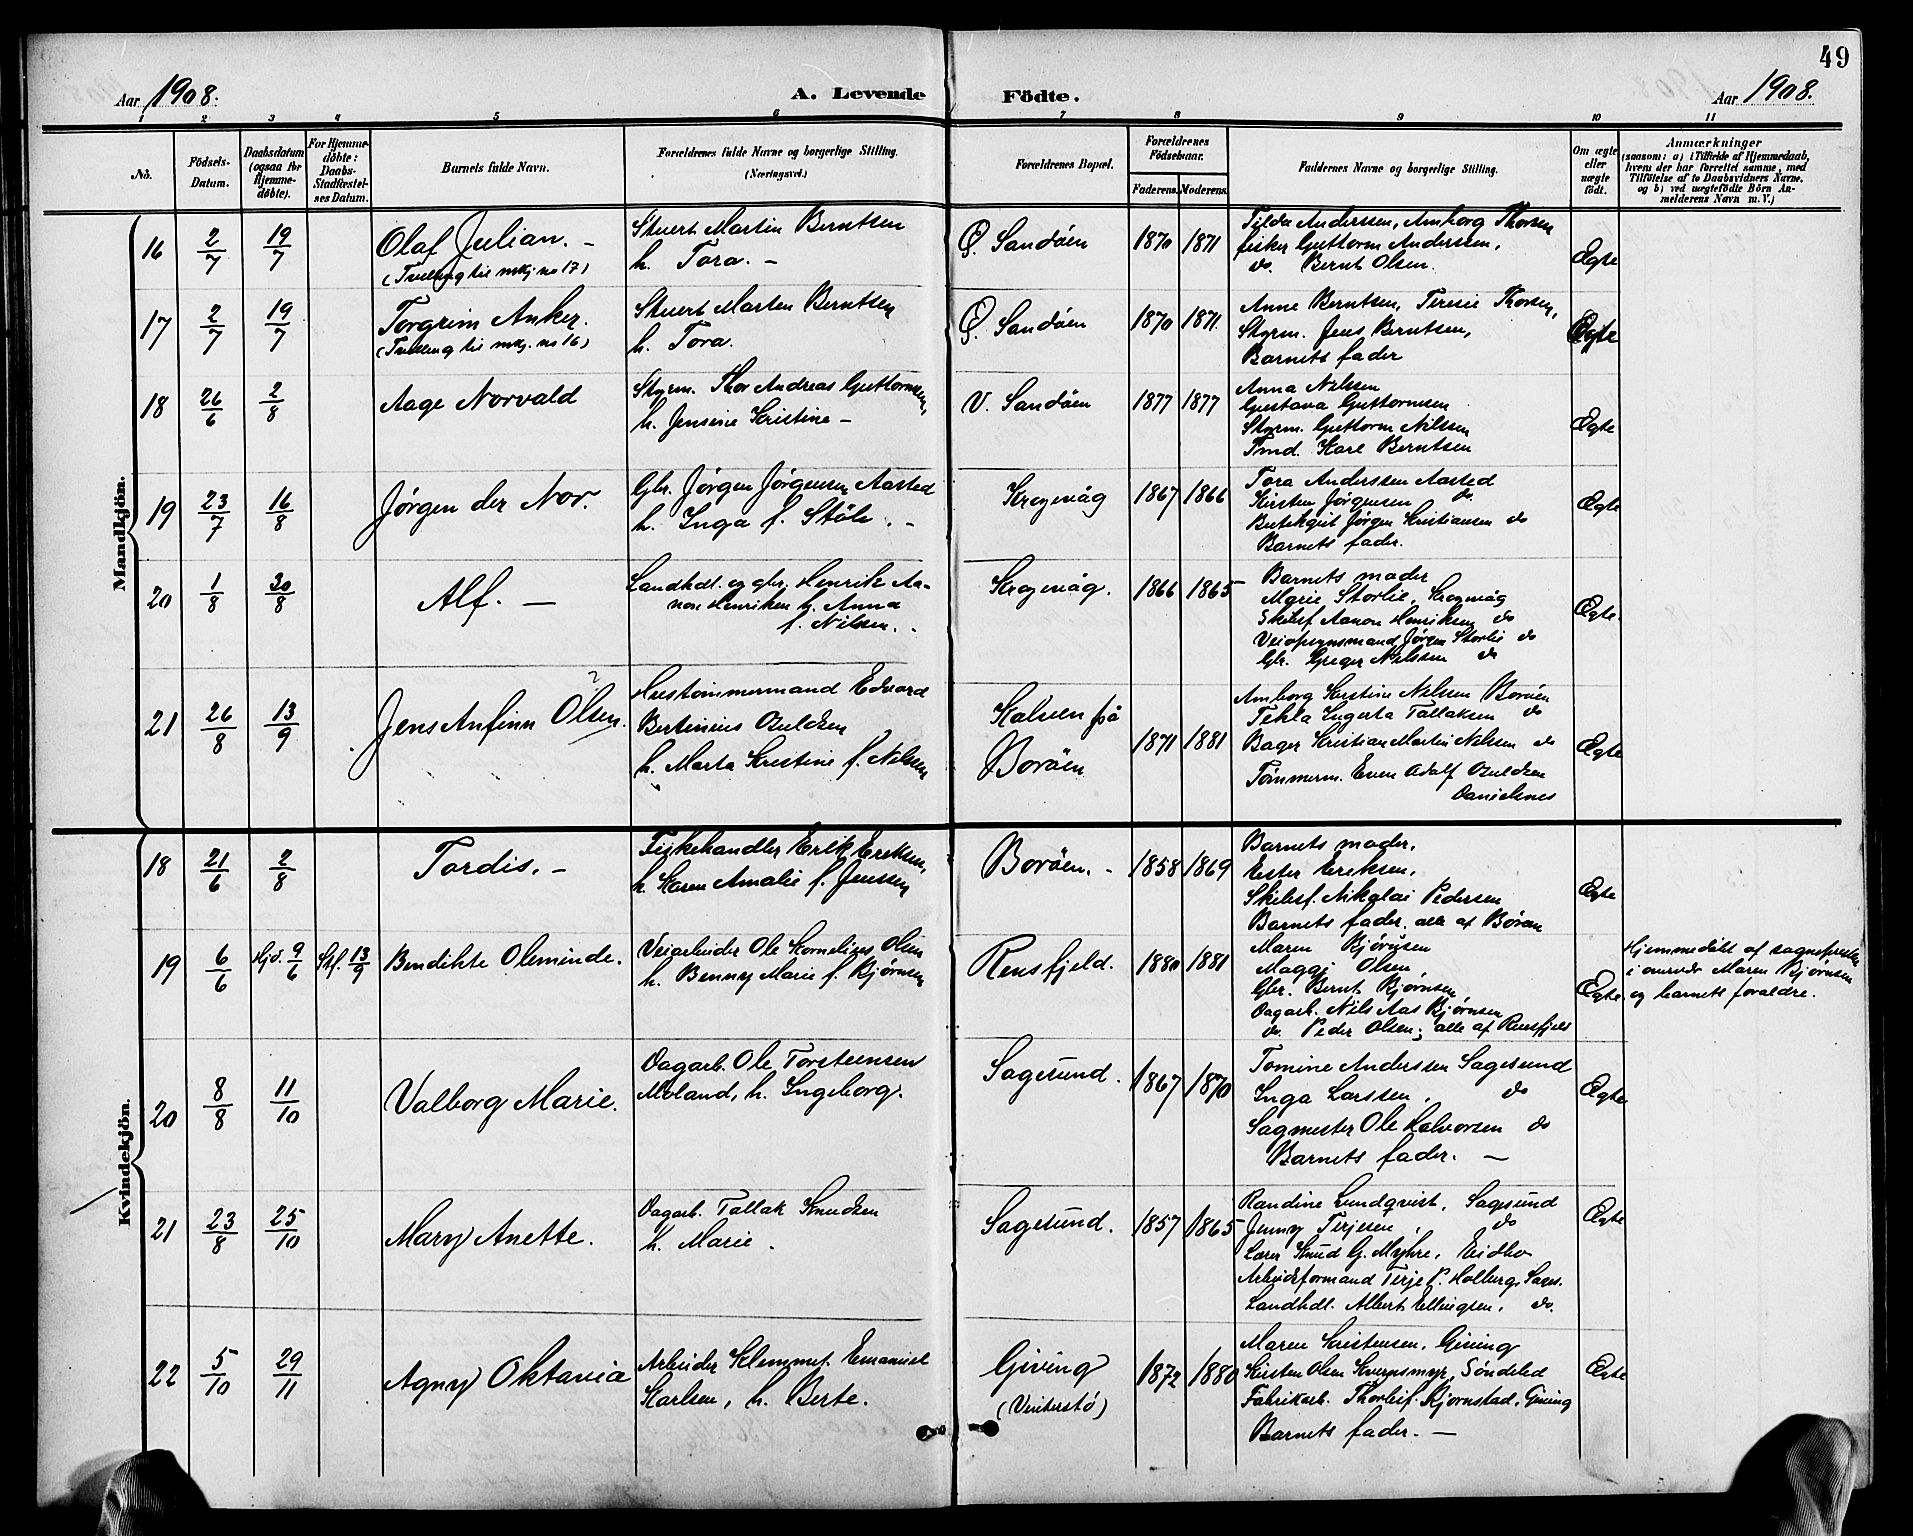 49
Aar 1908.
A. Levende Födte.
Aar 1908.
1 2 3 4 5 6 7 8 9 10 11
No.
Födsels-Datum.
Daabsdatum (ogsaa for Hjemme-døbte).
For Hjemme-døbte: Daabs-Stadfæstel-ses Datum.
Barnets fulde Navn.
Forældrenes fulde Navne og borgerlige Stilling.
(Næringsvei.)
Forældrenes Bopæl.
Forældrenes Födselsaar.
Faderens. Moderens.
Faddernes Navne og borgerlige Stilling.
Om ægte eller uægte født.
Anmærkninger
(saasom: a) i Tilfælde af Hjemmedaab,
hvem der har forrettet samme, med
Tilføielse af to Daabsvidners Navne,
og b) ved uægtefödte Börn An-
melderens Navn m. V.)
Mandkjön.
16 2/7 19/7 Olaf Julian. –
(Tvilling til mkj no 17)
Stuert Martin Berntsen
h. Tora. –
Ø. Sandöen 1870 1871
Tilda Anderssen, Amborg Thorsen
fisker Guttorm Anderssen,
do. Bernt Olsen.
Ægte
17 2/7 19/7 Torgrim Anker.
(Tvilling til mkj. no 16)
Stuert Marten Berntsen
h. Tora.
Ø. Sandöen 1870 1871.
Anne Berntsen, Teresie Thorsen,
Styrm. Jens Berntsen,
Barnets fader
Ægte
18 26/6 2/8 Aage Norvald
Styrm. Thor Andreas Guttormsen,
h. Jensine Kristine –
V. Sandöen 1877 1877
Anna Nilssen
Gustava Guttormsen
Styrm. Guttorm Nilssen
Tmd. Karl Berntsen
Ægte
19 23/7 16/8 Jørgen der Nor.
Gbr. Jørgen Jørgensen Aasted
h. Inga f. Støle. –
Krogvåg 1867 1866
Tora Anderssen Aasted
Kirsten Jørgensen do
Jørgen Kristiansen do
Barnets fader.
Ægte
20 1/8 30/8 Alf. –
Landhdl. og gbr. Henrik Aa-
non Henriksen h. Anna
f. Nilsen. –
Krogvåg. 1866 1865
Barnets moder
Marie Storlie, Krogvåg
Skibsf. Aanon Henriksen do
Veiopsynsmand Jørgen Storlie do
Gbr. Greger Nilssen do
Ægte.
21 26/8 13/9 Jens Anfinn Olsen. ?
Hustømmermand Edvard
Bertinius Buldsen
h. Marta Kristine f. Nilsen
Kalven på
Borøen
1871 1881
Amborg Kirstine Nilssen Borøen
Tekla Ingerta Tallaksen do
Bager Kristian Martin Nilssen do
Tømmerm. Even Adolf
Danielsnes
Ægte
Kvindekjön.
18 21/6 2/8 Tordis. –
Fiskehandler Erik Eriksen,
h. Karen Amalie f. Jenssen
Borøen. – 1858 1869
Barnets moder,
Ester Eriksen,
Skibsf. Nikolai Pedersen
Barnets fader. alle af Børøen
Ægte
19 6/6 Hjd. 9/6 Stf. 13/9 Bendikte Oleminde.
Veiarbeider Ole Kornelius Olsen
h. Benny Marie f. Bjørnsen
Rensfjeld. 1880 1881
Maren Bjørnsen
Maggi Olsen,
Gbr. Bernt Bjørnsen
Dagarb. Nils Aas Bjørnsen
do. Peder Olsen; alle af Rensfjeld
Ægte
Hjemmedøbt af sognepresten
i nærvær Maren Bjørnsen
og barnets forældre.
20 8/8 11/10 Valborg Marie.
Dagarb. Ole Torsteinsen
Moland, h. Ingeborg.
Sagesund. 1867 1870
Tomine Anderssen Sagesund
Inga Larssen, do
Sagmester Ole Halvorsen do
Barnets fader. –
Ægte
21 23/8 25/10 Mary Anette.
Dagarb. Tallak Knudsen
h. Marie.
Sagesund. 1857 1865
Randine Lundqvist, Sagesund
Jenny Terjesen, do
Lærer Knud G. Myhre, Eidbo
Arbeidsformand Terje P. Holberg, Sages.
Landhdl. Albert Ellingsen, do.
Ægte
22 5/10 29/11 Agny Oktavia
Arbeider Klemmet Emanuel
Karlsen, h. Berte.
Giving
(Vinterstø)
1872 1880
Maren Kristensen, Giving
Kirsten Olsen Kvernsmyr, Søndeled
Fabrikarb. Thorleif Bjørnstad, Giving
Barnets fader. –
Ægte